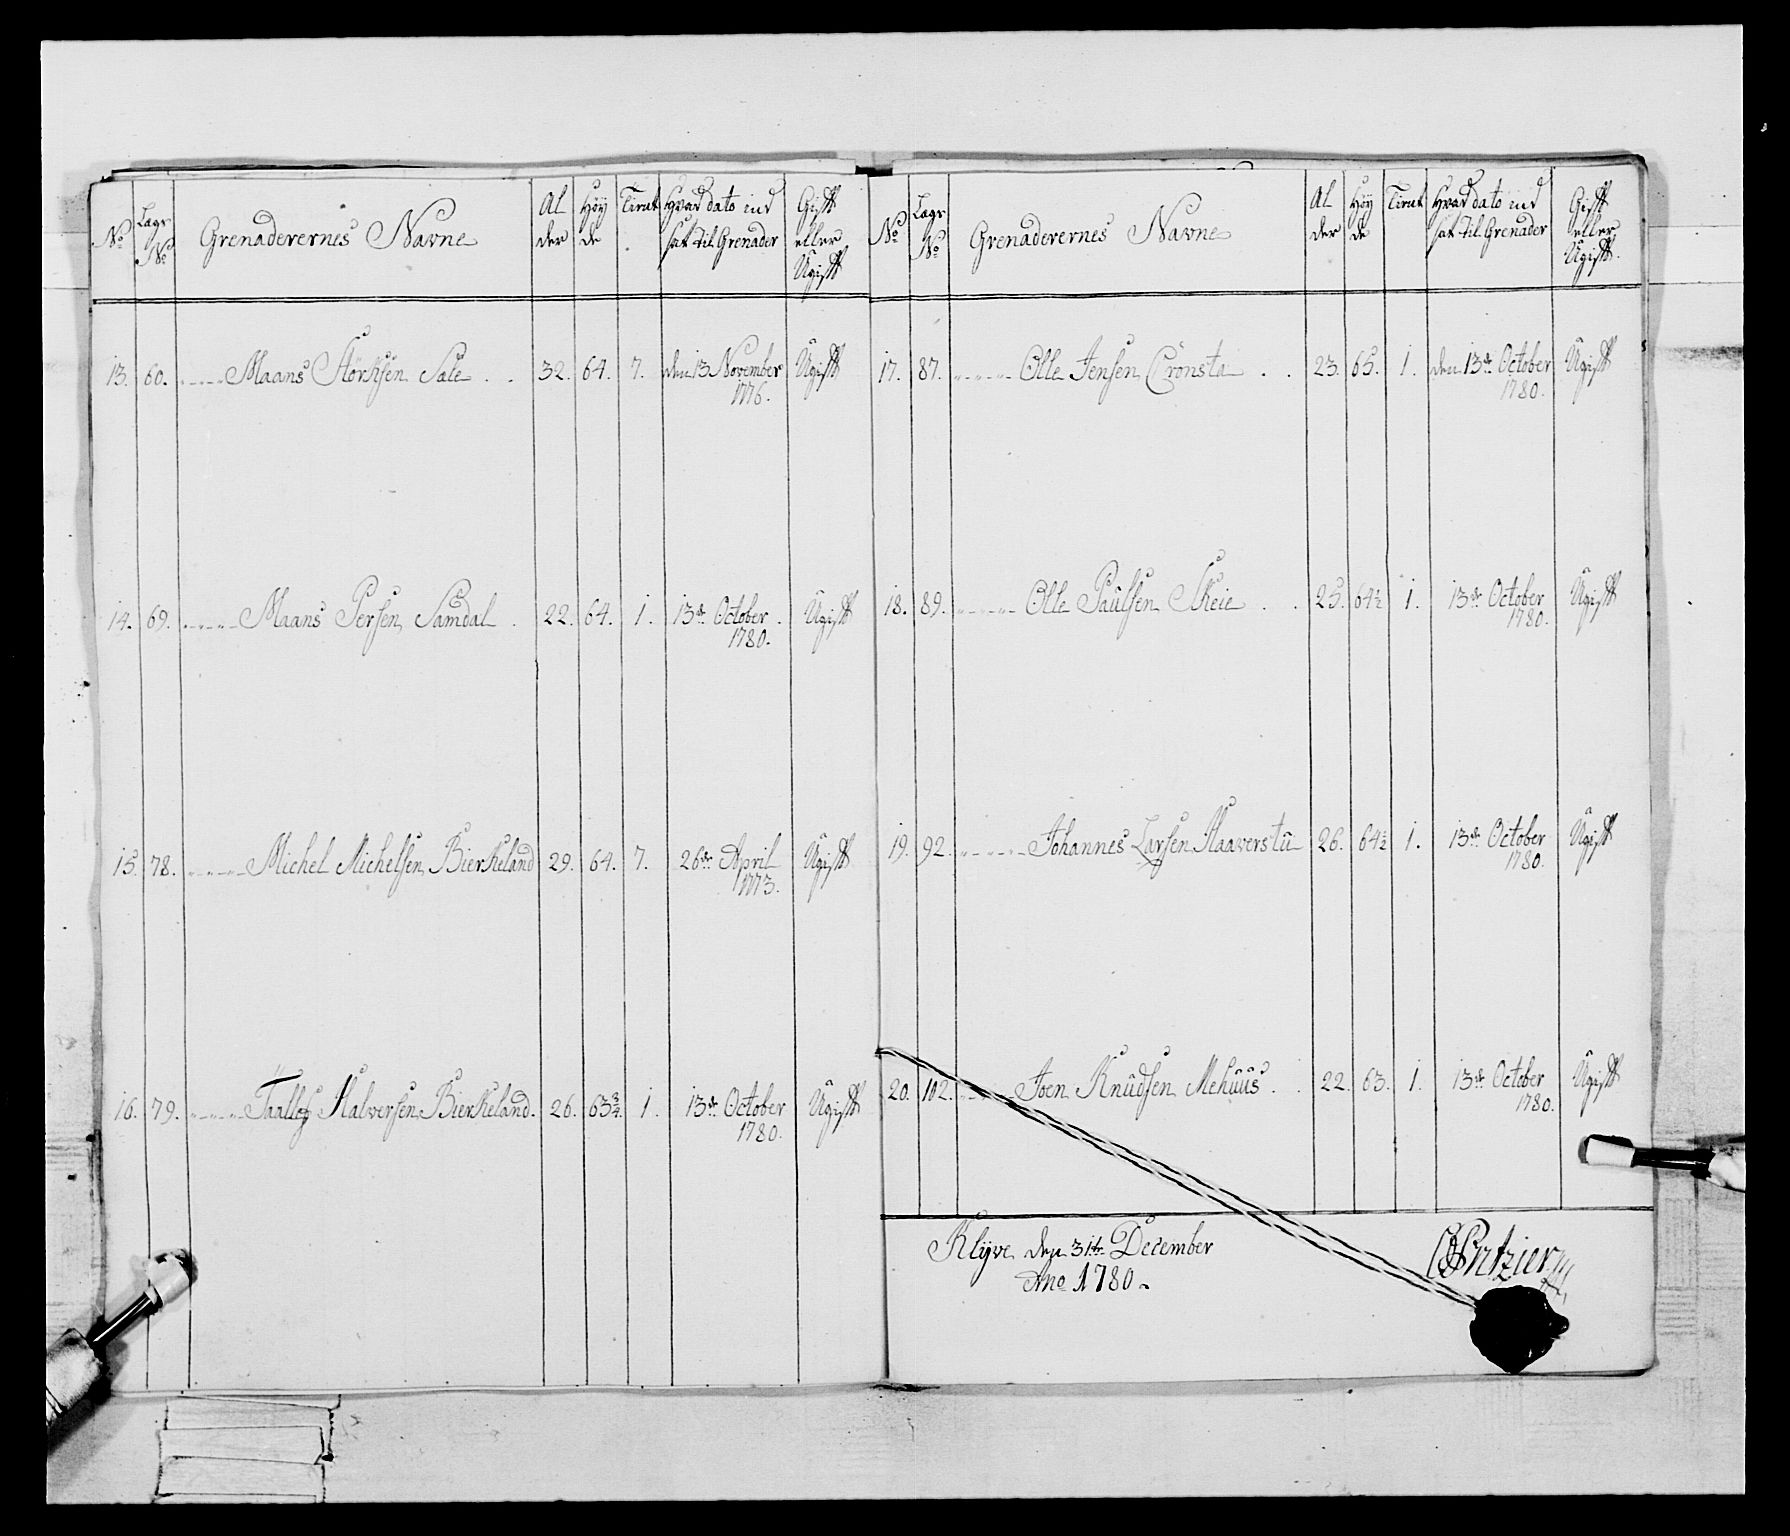 No Lagr No Grenaderernes Navne Al der Høy de Tienst Hvad dato ind sat til Grenader Gift eller Ugift
13. 60. Maans Störksen Sale 32. 64. 7. den 13 November 1776. Ugift
14. 69. Maans Persen Samdal 22. 64. 1. 13de October 1780. Ugift
15. 78. Michel Michelsen Bierkeland 29. 64. 7. 26de April 1773. Ugift
16. 79. Taallef Halversen Bierkeland. 26. 63¾. 1. 13de October 1780. Ugift
No Lagr No Grenaderernes Navne Al der Høy de Hvad dato ind sat til Grenader Gift eller Ugift.
17. 87. Olle Jensen Crönsta 23. 65. 1. den 13de October 1780. Ugift
18. 89. Olle Paulsen Skeie 25. 64½ 1. 13de October 1780. Ugift
19. 92. Johannes Larsen Haaverstu 26. 64½ 1. 13de October 1780. Ugift
20. 102. Joen Knudsen Mehuus. 22. 63. 1. 13de October 1780. Ugift
Klyve den 31te December
Ano 1780.